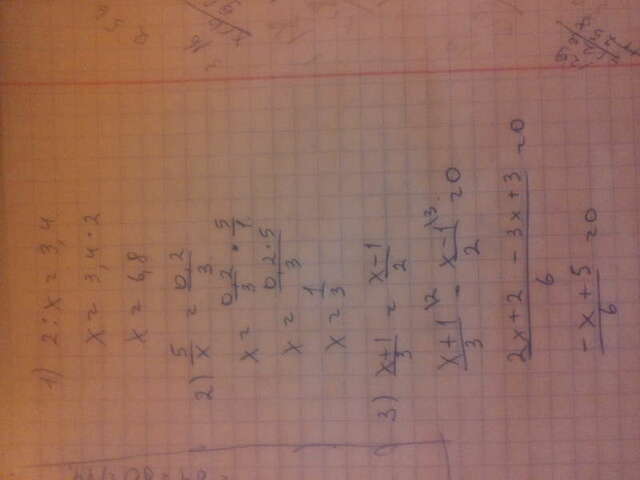 1) 2 : x = 3,4
x = 3,4 · 2
x = 6,8
2) 5/x = 0,2/3
x = 0,2/3 · 5/1
x = 0,2·5/3
x = 1/3
3) x+1/3 = x-1/2
x+1/3 \2 - x-1/2 \3 = 0
2x+2 - 3x+3/6 = 0
-x+5/6 = 0